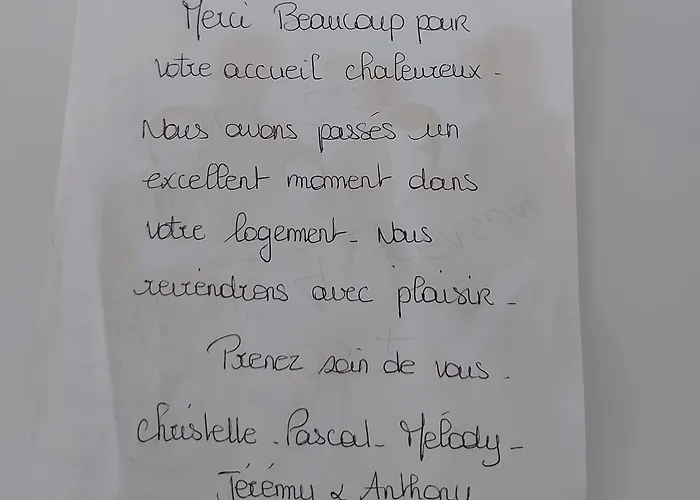 Merci Beaucoup pour
votre accueil chaleureux -
Nous avons passés un
excellent moment dans
votre logement - Nous
reviendrons avec plaisir -
Prenez soin de vous .
Christelle - Pascal - Mélody -
Jérémy & Anthony